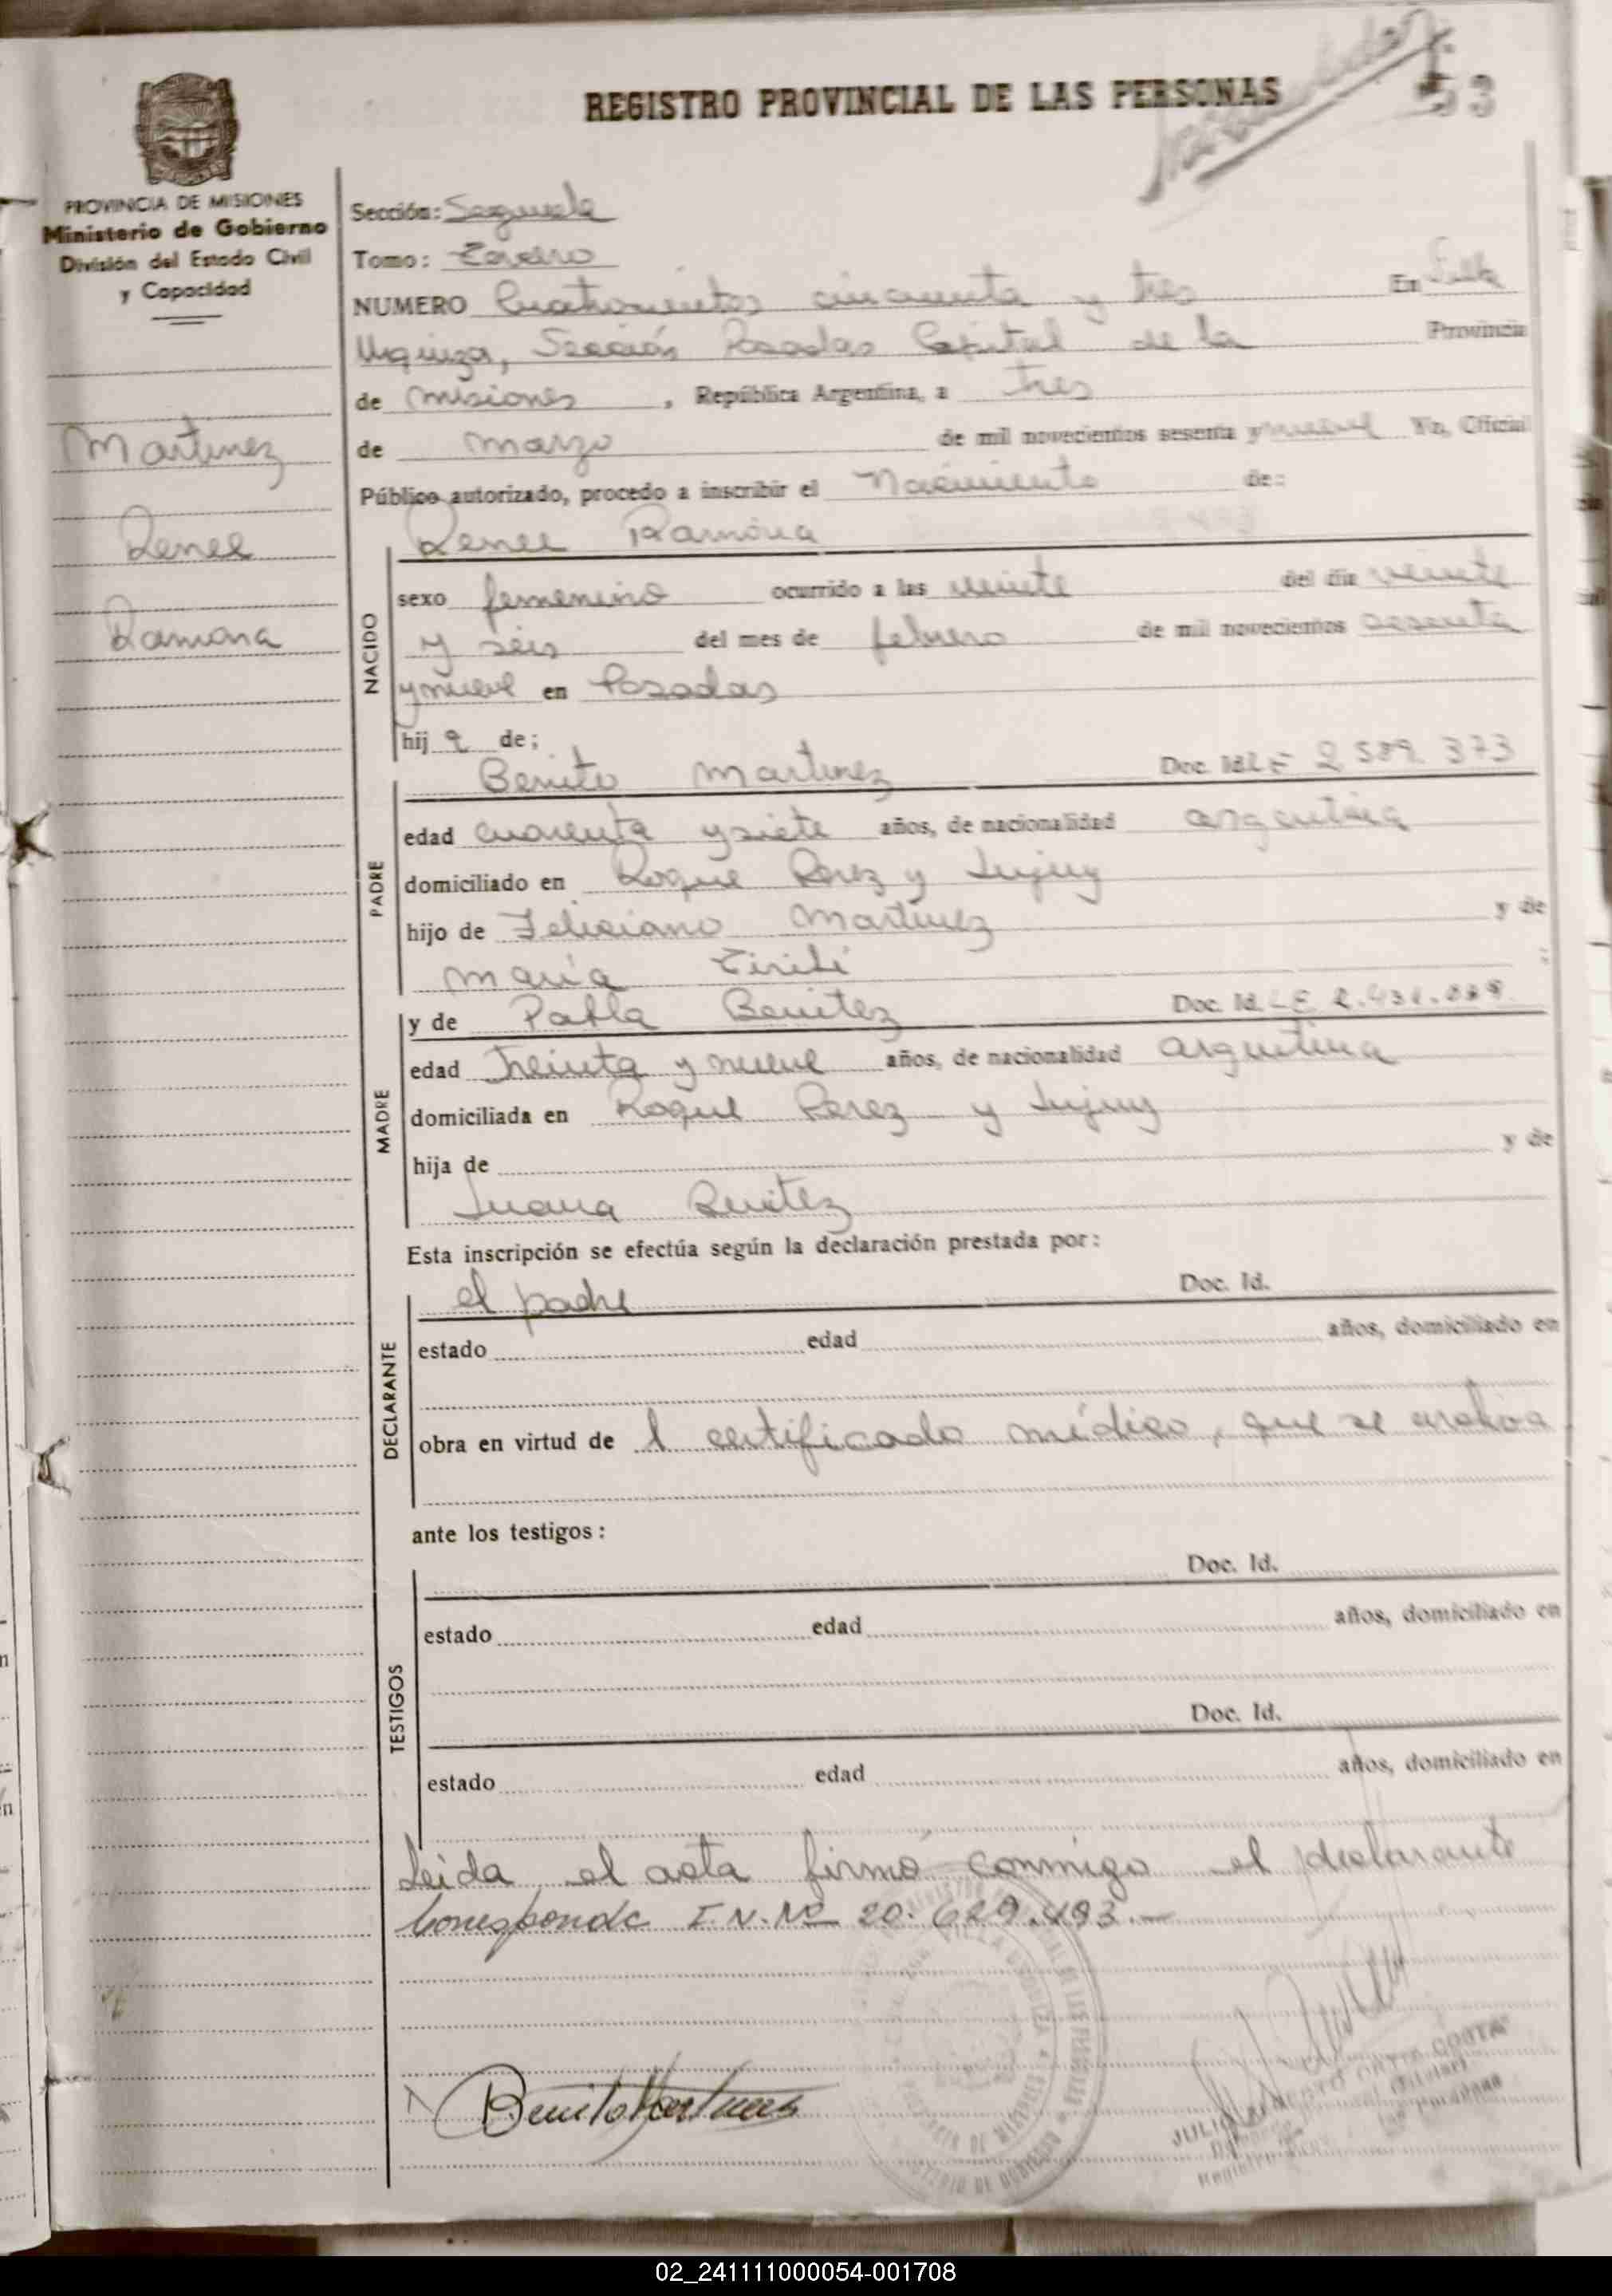 REGISTRO PROVINCIAL DE LAS PERSONAS
53
PROVINCIA DE MISIONES
Ministerio de Gobierno
División del Estado Civil
y Capacidad
Martinez
Renee
Ramona
Sección: Segunda
Tomo: Tercero
NUMERO Cuatrocientos cincuenta y tres En Villa
Urquiza, Sección Posadas Capital de la Provincia
de Misiones, República Argentina, a tres
de marzo de mil novecientos sesenta y nueve Yo, Oficial
Público autorizado, procedo a inscribir el Nacimiento de:
NACIDO
Renee Ramona
sexo femenino ocurrido a las veinte del día veinte
y seis del mes de febrero de mil novecientos sesenta
y nueve en Posadas
hij a de;
PADRE
Benito Martinez Doc. Id. L E 2.589.373
edad cuarenta y siete años, de nacionalidad argentina
domiciliado en Roque Perez y Jujuy
hijo de Feliciano Martinez y de
María ;
MADRE
y de Pabla Benitez Doc. Id. L E 2.431.089
edad treinta y nueve años, de nacionalidad argentina
domiciliada en Roque Perez y Jujuy
hija de y de
Juana Benitez
Esta inscripción se efectúa según la declaración prestada por:
DECLARANTE
el padre Doc. Id.
estado edad años, domiciliado en
obra en virtud de l certificado médico, que se archiva
ante los testigos:
TESTIGOS
Doc. Id.
estado edad años, domiciliado en
Doc. Id.
estado edad años, domiciliado en
Leida el acta firmó conmigo el declarante
Corresponde I.N.Nº 20.629.493.-
Benito Martinez
JULIO ORTIZ COSTA
02_241111000054-001708